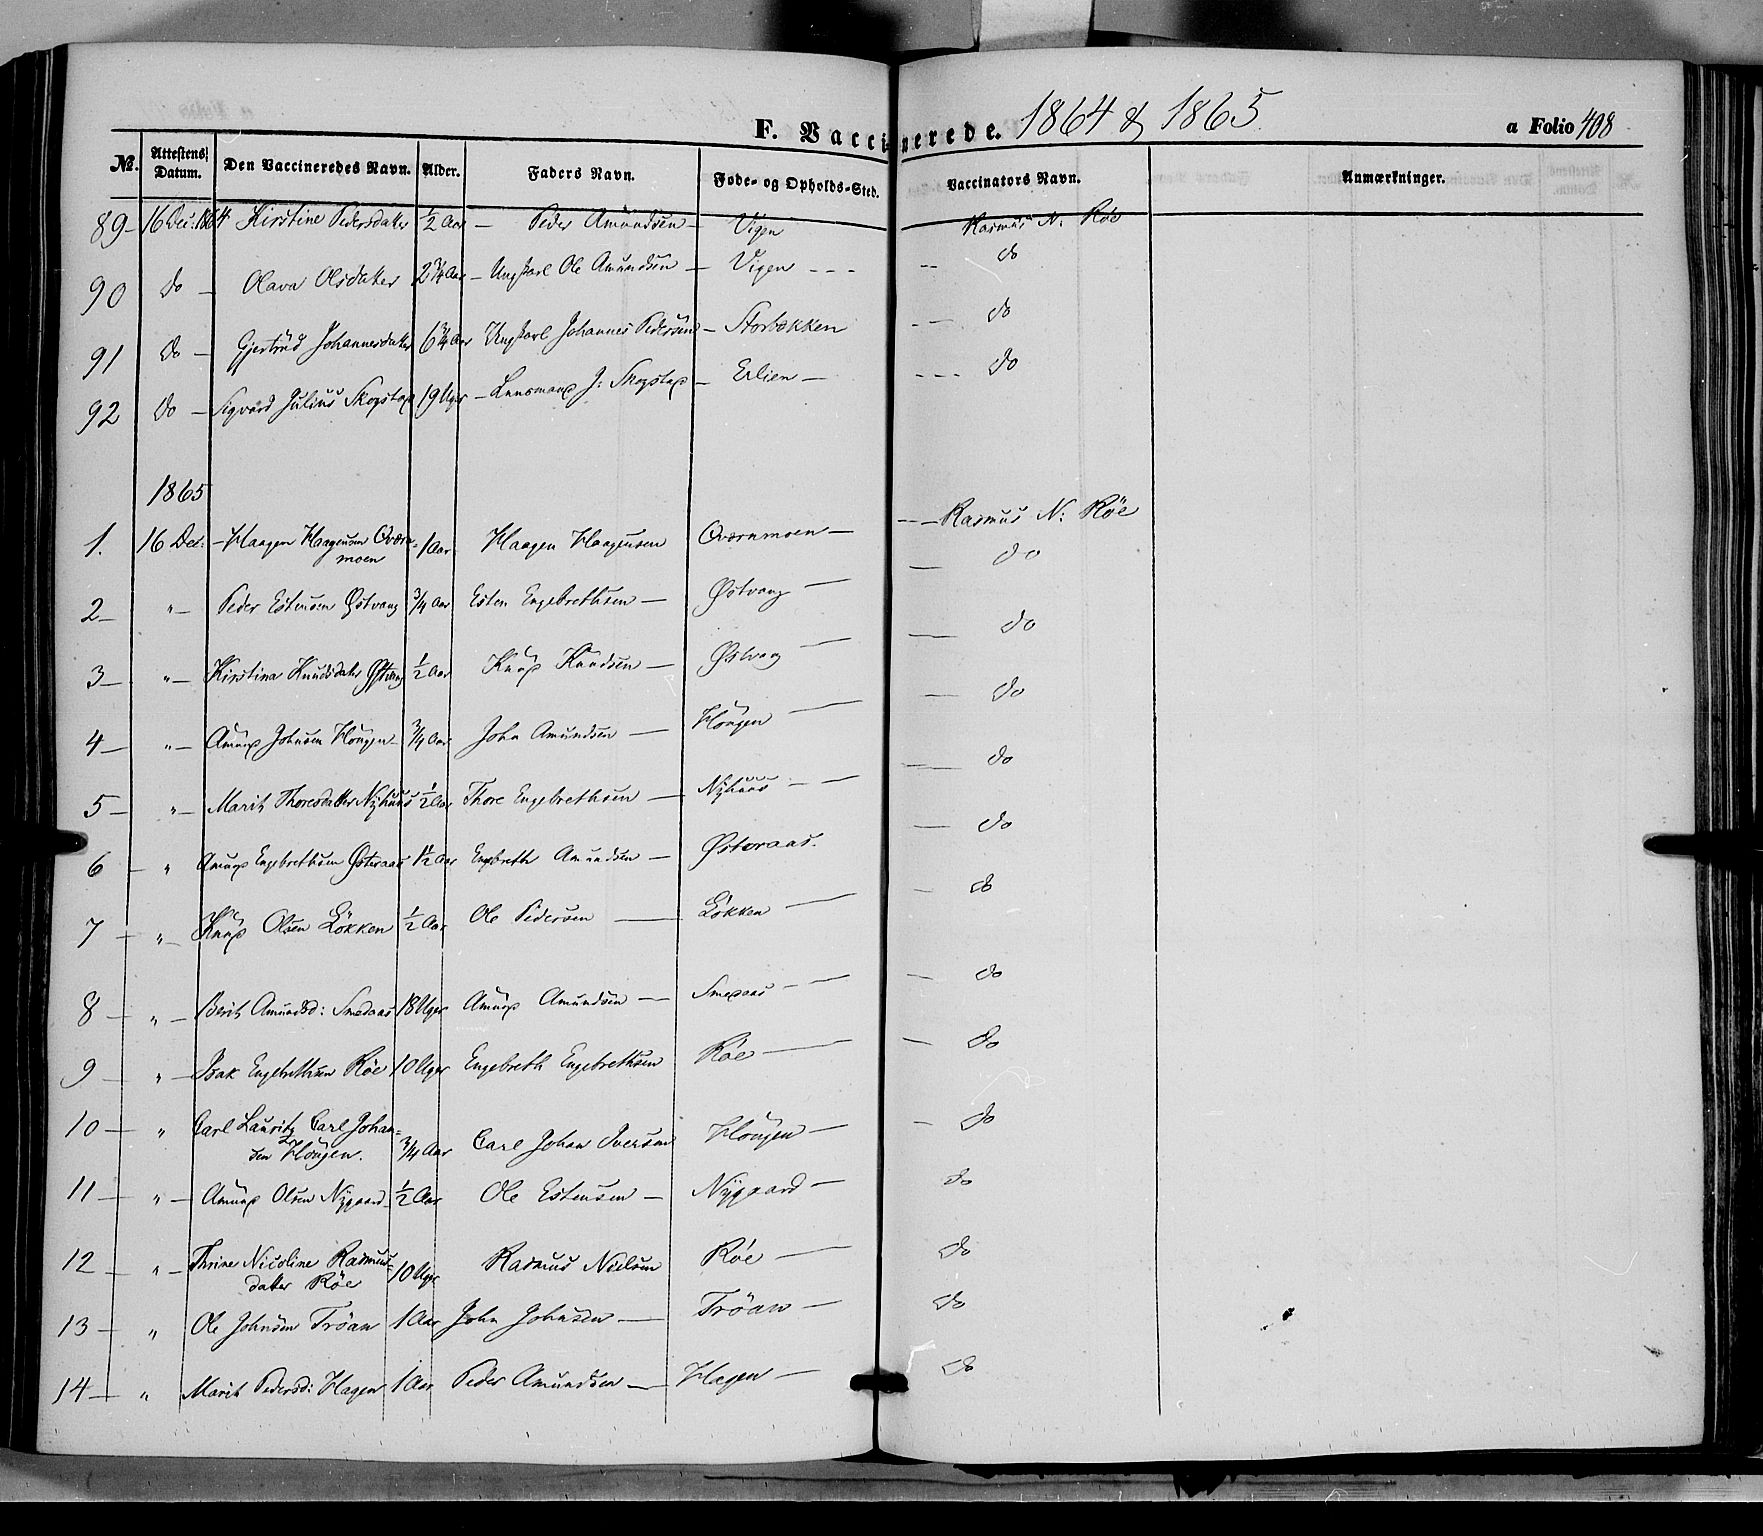 F. Vaccinerede. 1864 & 1865 a Folio 408
No. Attestens Datum. Den Vaccineredes Navn. Alder. Faders Navn. Føde- og Opholds-Sted. Vaccinators Navn. Anmærkninger.
89 - 16 Dec: 1864 Kirstine Pedersdatter ½ Aar - Peder Amundsen - Vigen Rasmus N: Röe
90 do - Olava Olsdatter 2¼ Aar - Ungkarl Ole Amundsen - Vigen - - - -- do
91 do - Gjertrud Johannesdatter 6¾ Aar Ungkarl Johannes Pedersen - Storbekken - -- do
92 do - Sigvard Julius Skogstad 19 Uger - Lensmand J: Skogstad - Erlien - - -- do
1865
1. 16 Dec: - Haagen Haagensen Qværn= 1 Aar Haagen Haagensen Qværnmoen - - - Rasmus N: Röe
moen
2 - " - Peder Estensen Østvang ¾ Aar Esten Engebrethsen - Østvang - - do
3 - " - Kirstina Knudsdatter Østvang ½ Aar Knud Knudsen - Østvang - - do
4 - " - Amund Johnsen Hougen ¾ Aar John Amundsen - Hougen - - do
5 - " - Marit Thoresdatter Nyhuus ½ Aar Thore Engebrethsen - Nyhuus - - - do
6 - " Amund Engebrethsen Østeraas 1½ Aar Engebreth Amundsen - Østeraas. - do
7 - " - Knud Olsen Løkken ½ Aar Ole Pedersen - Løkken - - do
8 - " - Berit Amundsd: Smedaas 18 Uger Amund Amundsen - Smedaas - - - do
9 - " - Isak Engebrethsen Røe 10 Uger Engebreth Engebrethsen Røe - - do
10 - " Carl Lauritz Carl Johan= ¾ Aar Carl Johan Iversen Hougen - - do
sen Hougen.
11 - " - Amund Olsen Nygaard ½ Aar Ole Estensen - Nygaard - do
12 - " - Thrine Nicoline Rasmus= 10 Uger Rasmus Nielsen Røe - do
datter Røe
13 - " Ole Johnsen Trøan 1 Aar John Johnsen - Trøan - do
14 - " Marit Pedersd: Hagen 1 Aar Peder Amundsen - Hagen - do